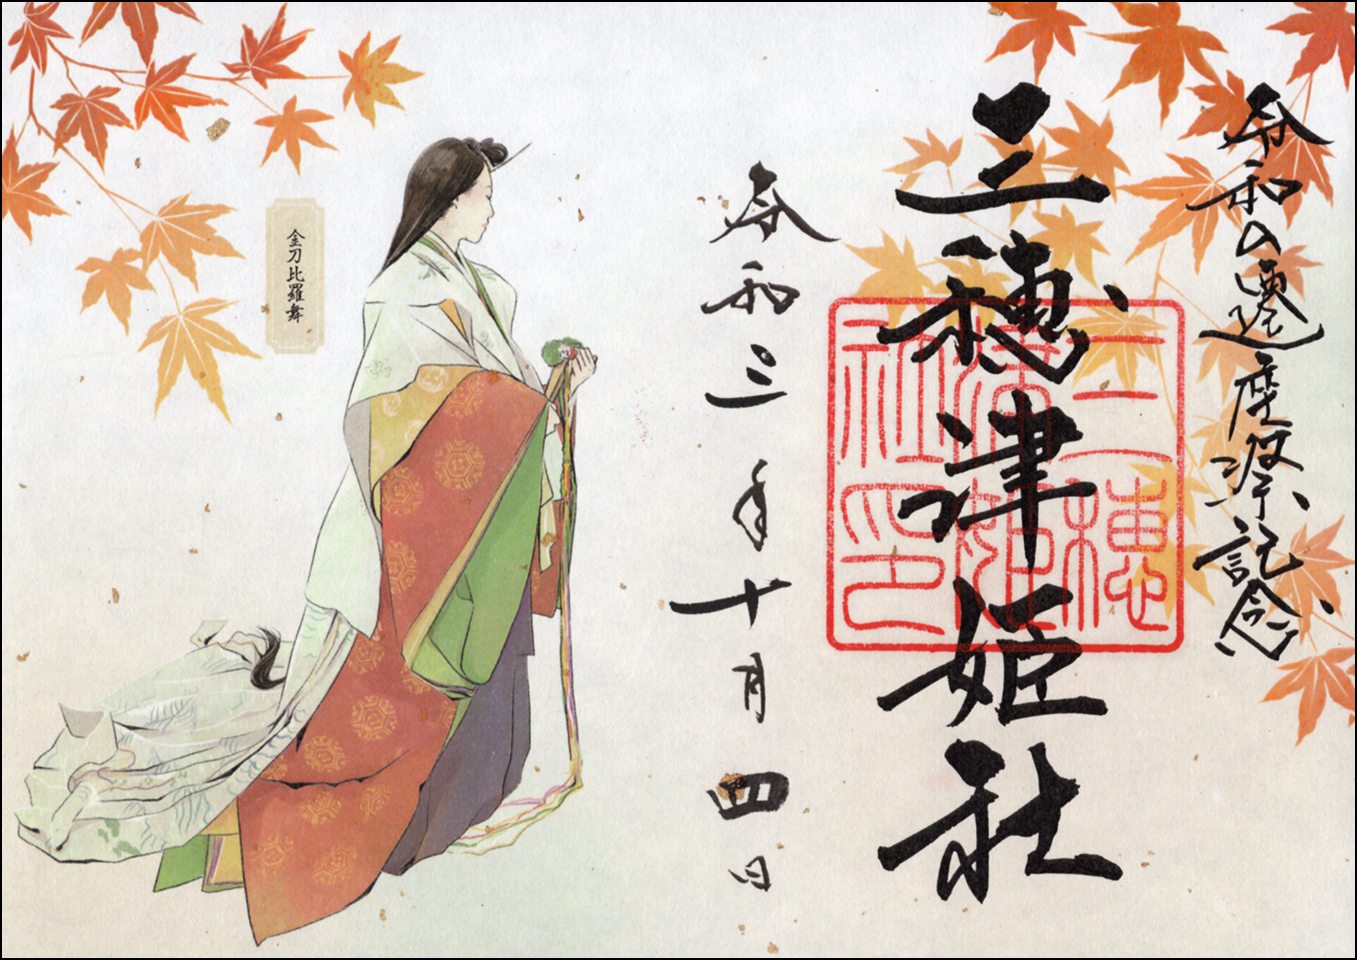 令和の遷座祭記念
三穂津姫社
三穂津姫社印
令和三年十月四日
金刀比羅舞